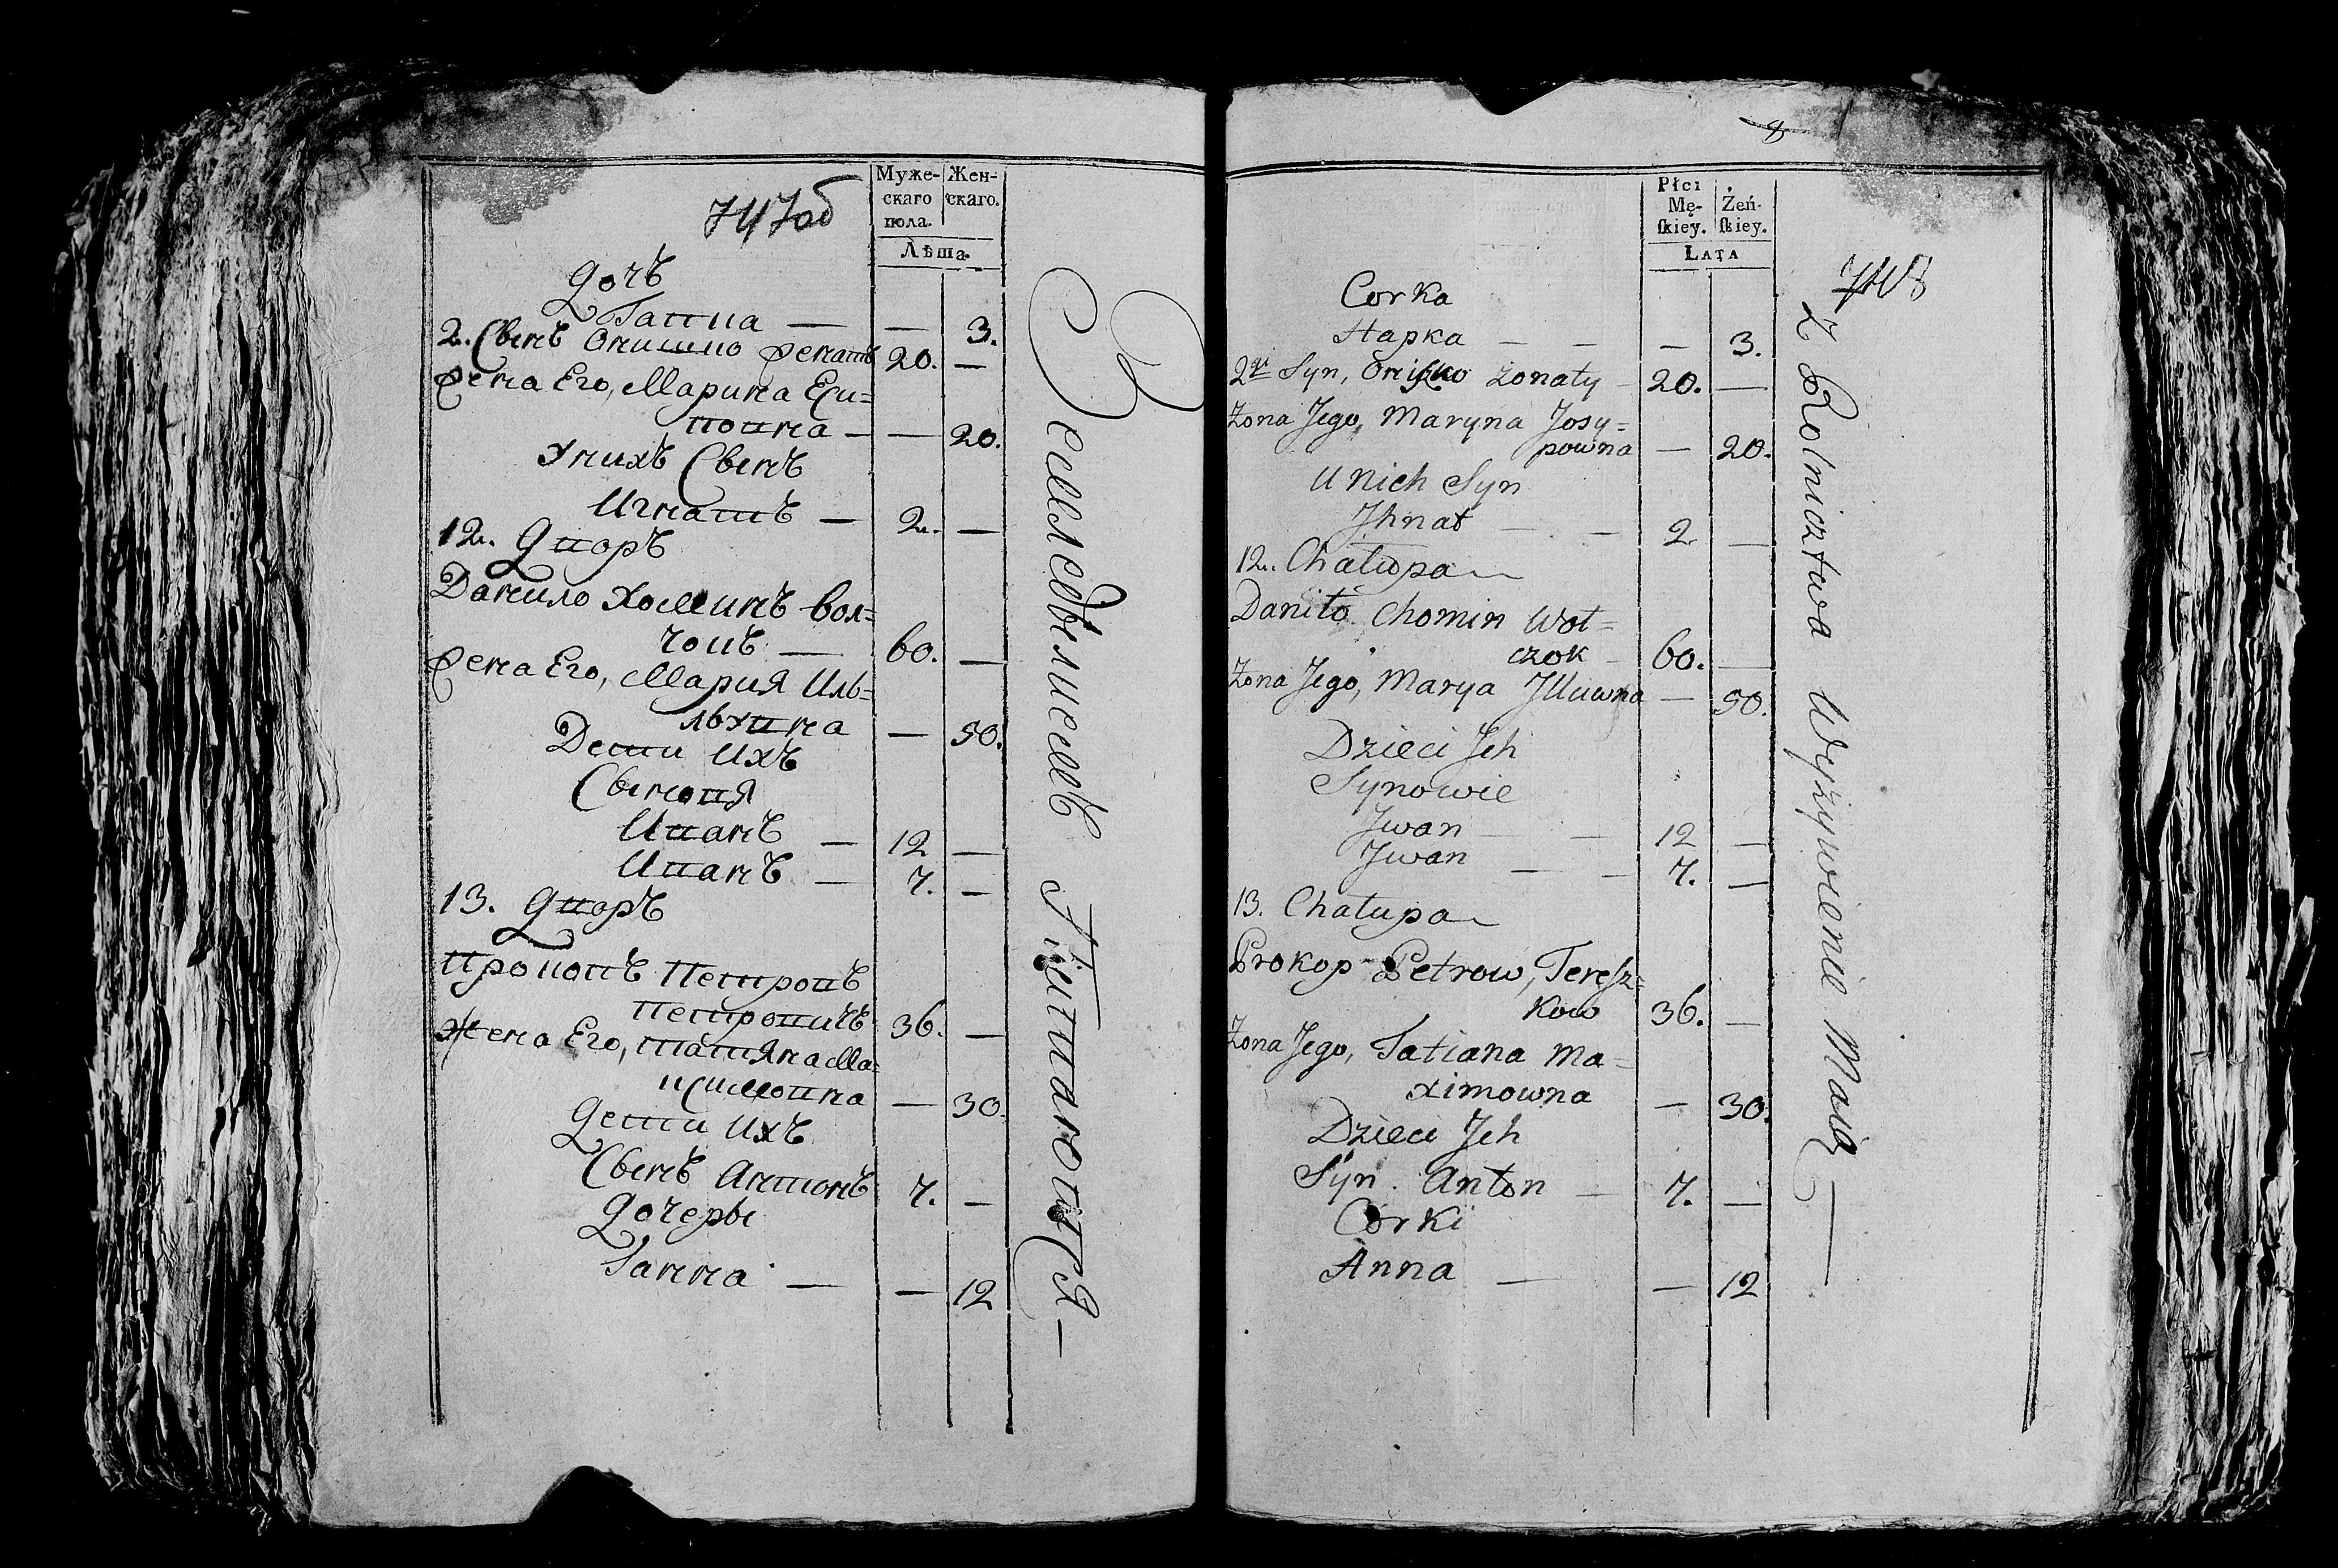 747об
Муже-
скаго
пола.
Жен-
скаго.
Лѣта.
Дочъ
Гапка — — 3.
2. Сынъ Онишко женатъ 20. —
Жена Его, Марина Еси=
повна — — 20.
У нихъ Сынъ
Игнатъ — 2. —
12. Дворъ
Данило Хоминъ Вол=
чокъ — 60. —
Жена Его, Мария Иль=
льувна — 50.
Дети Ихъ
Сыновя
Иванъ — 12 —
Иванъ — 7. —
13. Дворъ
Прокопъ Петровъ
36. —
Жена Его, Татяна Ма=
ксимовна — 30.
Дети Ихъ
Сынъ Антонъ 7. —
Дочеры
Ганна — — 12
Земледелисемъ Питаются —
8
748
Płci
Mę-
ſkiey.
Żeń-
ſkiey.
Lata
Corka
Hapka — — — 3.
2gi Syn, Oniſzko żonaty — 20. —
Żona Jego, Maryna Josy=
powna — 20.
U nich Syn
Jhnat — — 2. —
12. Chałupa
Daniło Chomin Woł=
czok — 60. —
Żona Jego, Marya Jlluwna — 50.
Dzieci Jch
Synowie
Jwan — 12 —
Jwan — — 7. —
13. Chałupa
Prokop Petrow, Tereſz=
kow 36. —
Żona Jego, Tatiana Ma=
ximowna — 30.
Dzieci Jch
Syn. Anton — 7. —
Corki
Anna — — 12
Z Rolnicztwa Wyżywienie Maią —